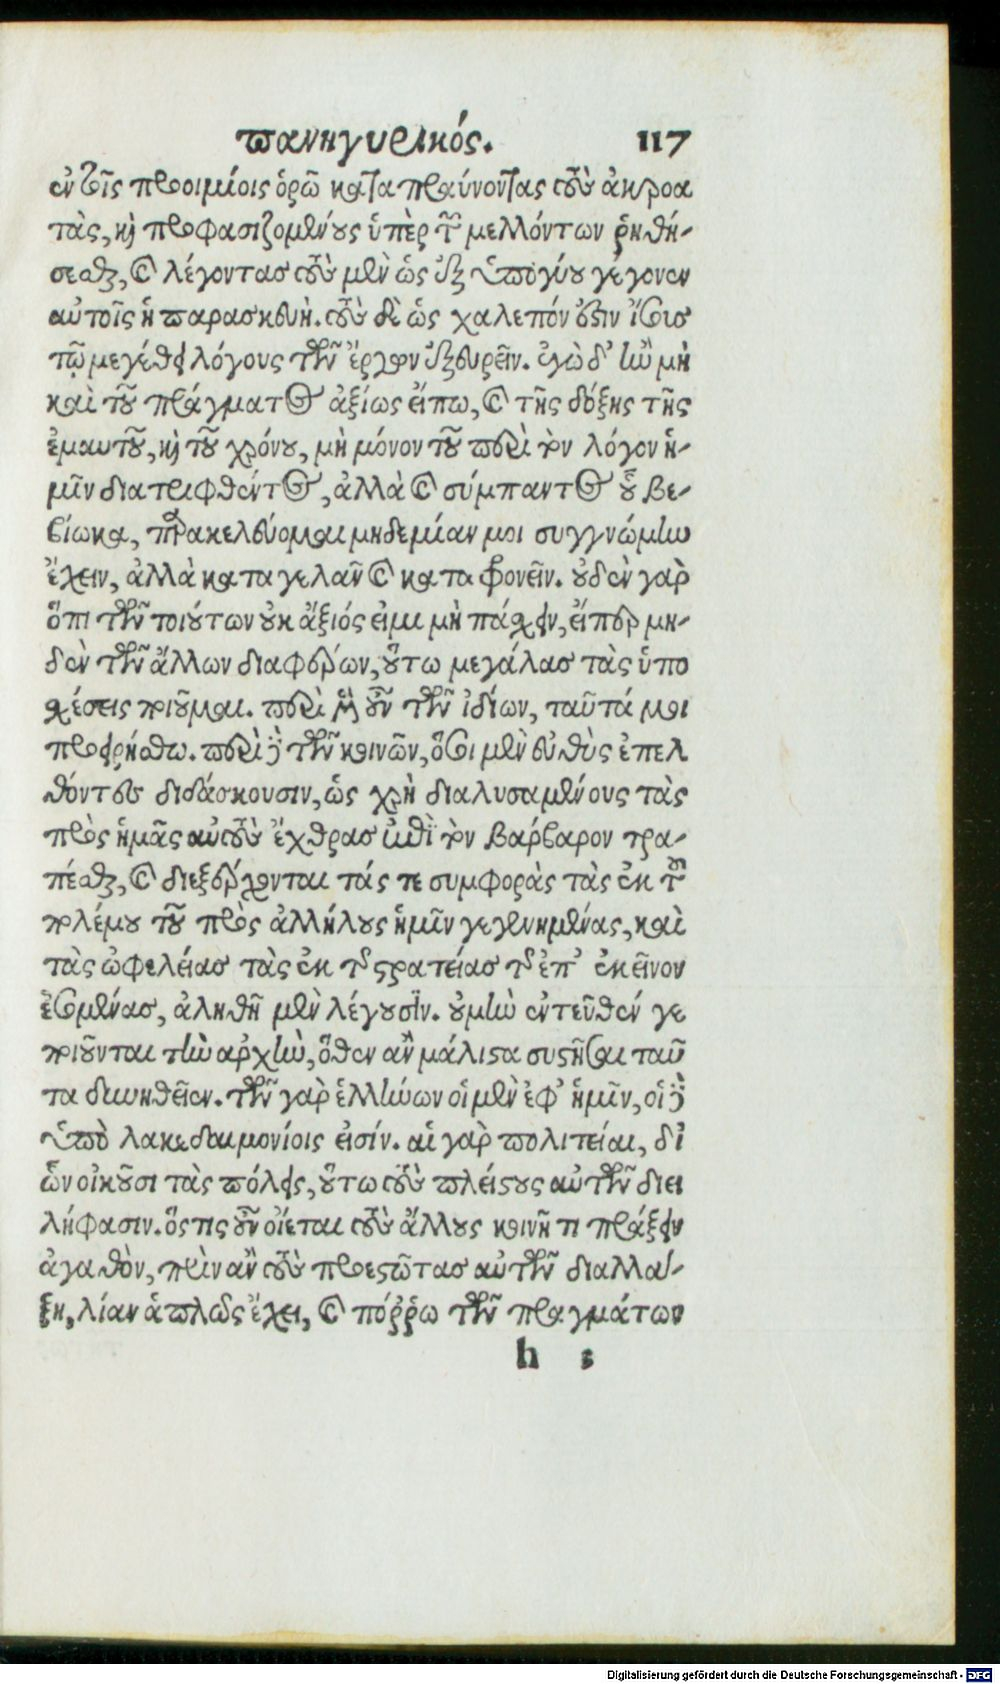 πανηγυρικός. 117
ἐν τοῖς προοιμίοις ὁρῶ καταπραΰνοντας τοὺς ἀκροα
τὰς, καὶ προφασιζομένους ὑπὲρ τῶν μελλόντων ῥηθή-
σεσθαι, καὶ λέγοντας τοὺς μὲν ὡς ἐξ ὑπογύου γέγονεν
αὐτοῖς ἡ παρασκευὴ. τοὺς δὲ ὡς χαλεπόν ἐστιν ἴσους
τῷ μεγέθει λόγους τῶν ἔργων ἐξευρεῖν. ἐγὼ δ' ἢν μὴ
καὶ τοῦ πράγματος ἀξίως εἴπω, καὶ τῆς δόξης τῆς
ἐμαυτοῦ, καὶ τοῦ χρόνου, μὴ μόνον τοῦ περὶ τὸν λόγον ἡ-
μῖν διατριφθέντος, ἀλλὰ καὶ σύμπαντος οὗ βε-
βίωκα, παρακελεύομαι μηδεμίαν μοι συγγνώμην
ἔχειν, ἀλλὰ καταγελᾶν καὶ καταφρονεῖν. οὐδὲν γὰρ
ὅτι τῶν τοιούτων οὐκ ἄξιός εἰμι μὴ πάσχειν, εἴπερ μη-
δὲν τῶν ἄλλων διαφέρων, οὕτω μεγάλας τὰς ὑπο
σχέσεις ποιοῦμαι. περὶ μὲν οὖν τῶν ἰδίων, ταῦτά μοι
προειρήσθω. περὶ δὲ τῶν κοινῶν, ὅσοι μὲν εὐθὺς ἐπελ
θόντες διδάσκουσιν, ὡς χρὴ διαλυσαμένους τὰς
πρὸς ἡμᾶς αὐτοὺς ἔχθρας ἐπὶ τὸν βάρβαρον τρα-
πέσθαι, καὶ διεξέρχονται τάς τε συμφορὰς τὰς ἐκ τοῦ
πολέμου τοῦ πρὸς ἀλλήλους ἡμῖν γεγενημένας, καὶ
τὰς ὠφελείας τὰς ἐκ τῆς στρατείας τῆς ἐπ' ἐκεῖνον
ἐσομένας, ἀληθῆ μὲν λέγουσιν. οὐ μὴν ἐντεῦθέν γε
ποιοῦνται τὴν ἀρχὴν, ὅθεν ἂν μάλιστα συστῆσαι ταῦ
τα δυνηθεῖεν. τῶν γὰρ ἑλλήνων οἱ μὲν ἐφ' ἡμῖν, οἱ δὲ
ὑπὸ λακεδαιμονίοις εἰσίν. αἱ γὰρ πολιτείαι, δι'
ὧν οἰκοῦσι τὰς πόλεις, οὕτω τοὺς πλείστους αὐτῶν διει
λήφασιν. ὅστις οὖν οἴεται τοὺς ἄλλους κοινῇ τι πράξειν
ἀγαθὸν, πρὶν ἂν τοὺς προεστῶτας αὐτῶν διαλλά-
ξῃ, λίαν ἁπλῶς ἔχει, καὶ πόῤῥω τῶν πραγμάτων
h
Digitalisierung gefördert durch die Deutsche Forschungsgemeinschaft - DFG